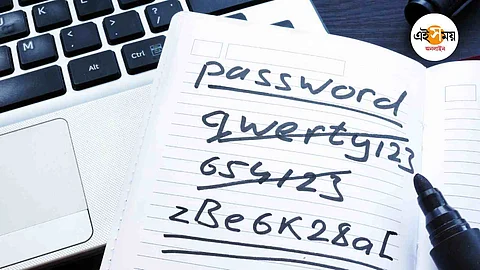 এই সময়
অনলাইন
password
qwerty123
654123
zBe6K28a[
M
K
L
Alt
Ctrl